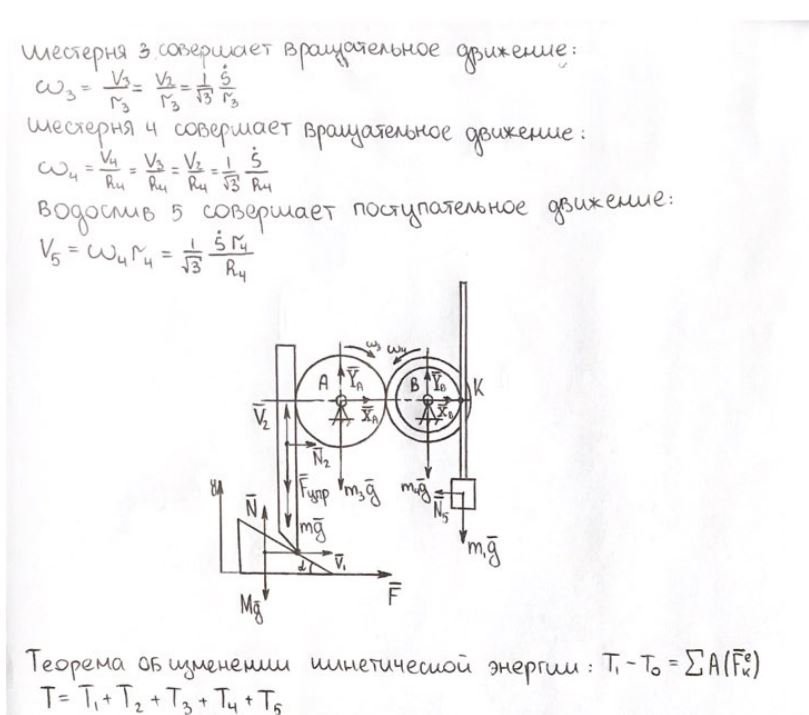 шестерня 3 совершает вращательное движение:
ω₃ = V₃/r₃ = V₂/r₃ = 1/√3 Ṡ/r₃
шестерня 4 совершает вращательное движение:
ω₄ = V₄/R₄ = V₃/R₄ = V₂/R₄ = 1/√3 Ṡ/R₄
Водослив 5 совершает поступательное движение:
V₅ = ω₄r₄ = 1/√3 Ṡr₄/R₄
ω₃ ω₄
A Y̅_A B Y̅_B K
V̅₂ X̅_A X̅_B
N̅₂
F̅упр m₃g̅ m₄g̅ N̅₅
y N̅ mg̅ m₁g̅
α V̅₁
Mg̅ F̅
Теорема об изменении кинетической энергии: T₁ - T₀ = ΣA(F̅ₖᵉ)
T = T₁ + T₂ + T₃ + T₄ + T₅